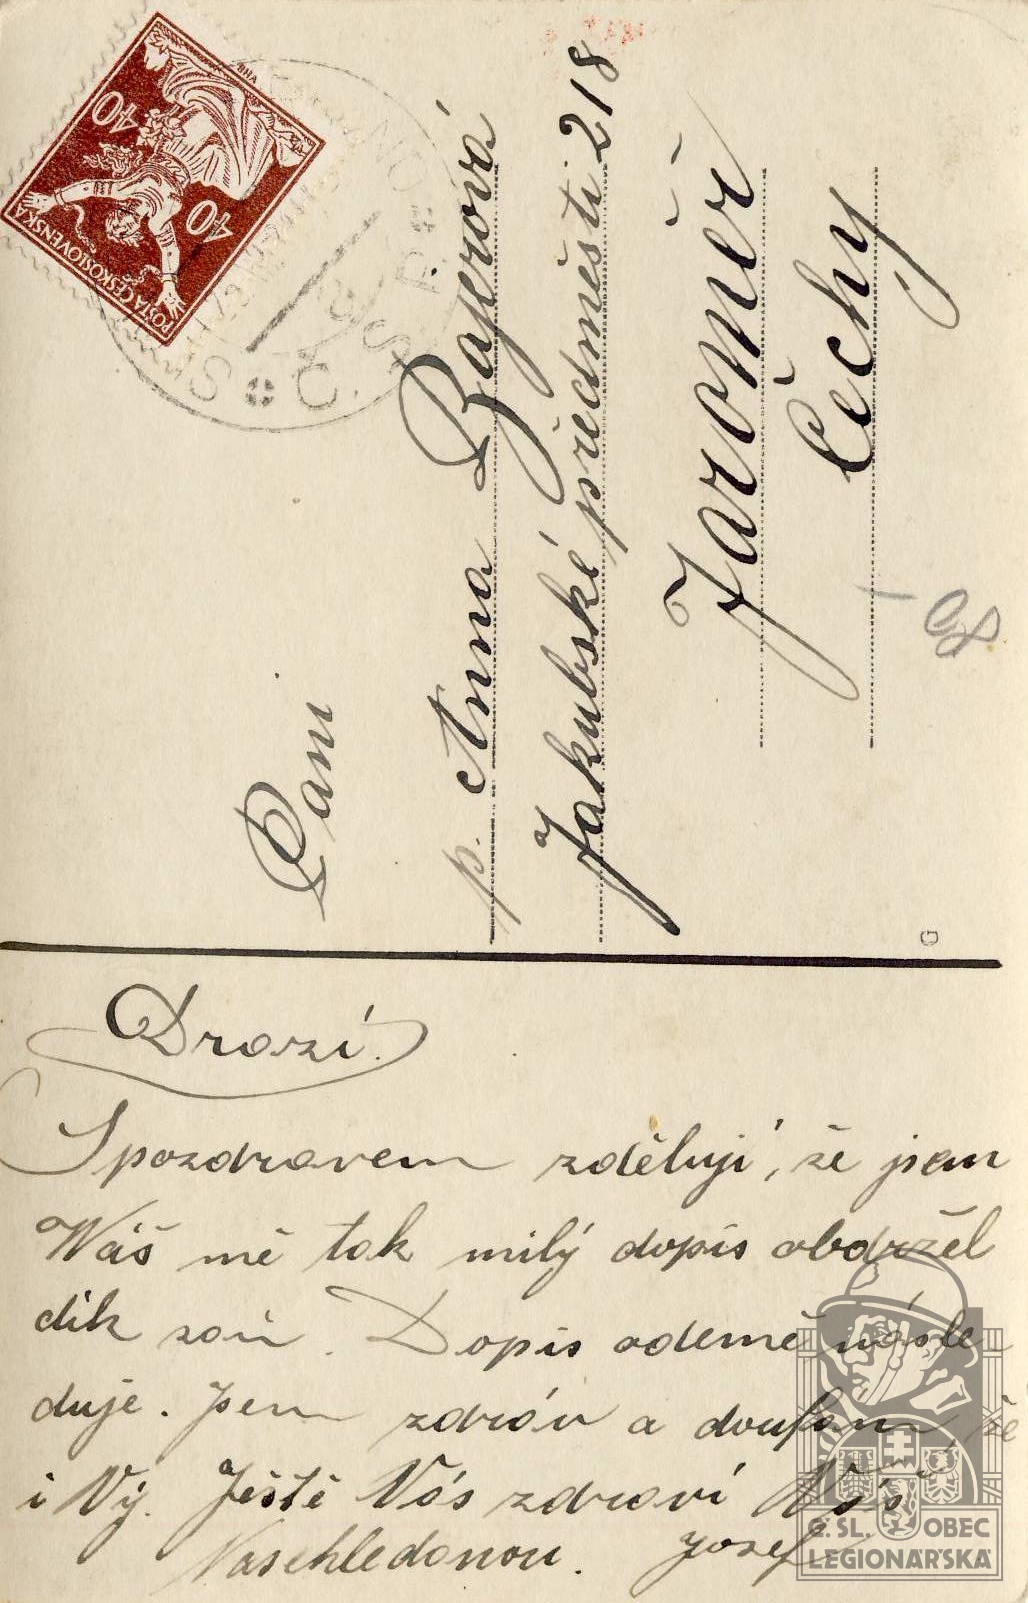 POŠTA ČESKOSLOVENSKA
40
40
Paní
p. Anna Bajerová
Jakubské předměstí 218
Jaroměř
Čechy
Drozí.
S pozdravem zděluji, že jsem
Váš mě tak milý dopis obdržel
dík zaň. Dopis odemě násle
duje. Jsem zdráv a doufám, že
i Vy. Ještě Vás zdraví Váš
Naschledanou. Josef
Č. SL. OBEC
LEGIONÁŘSKÁ